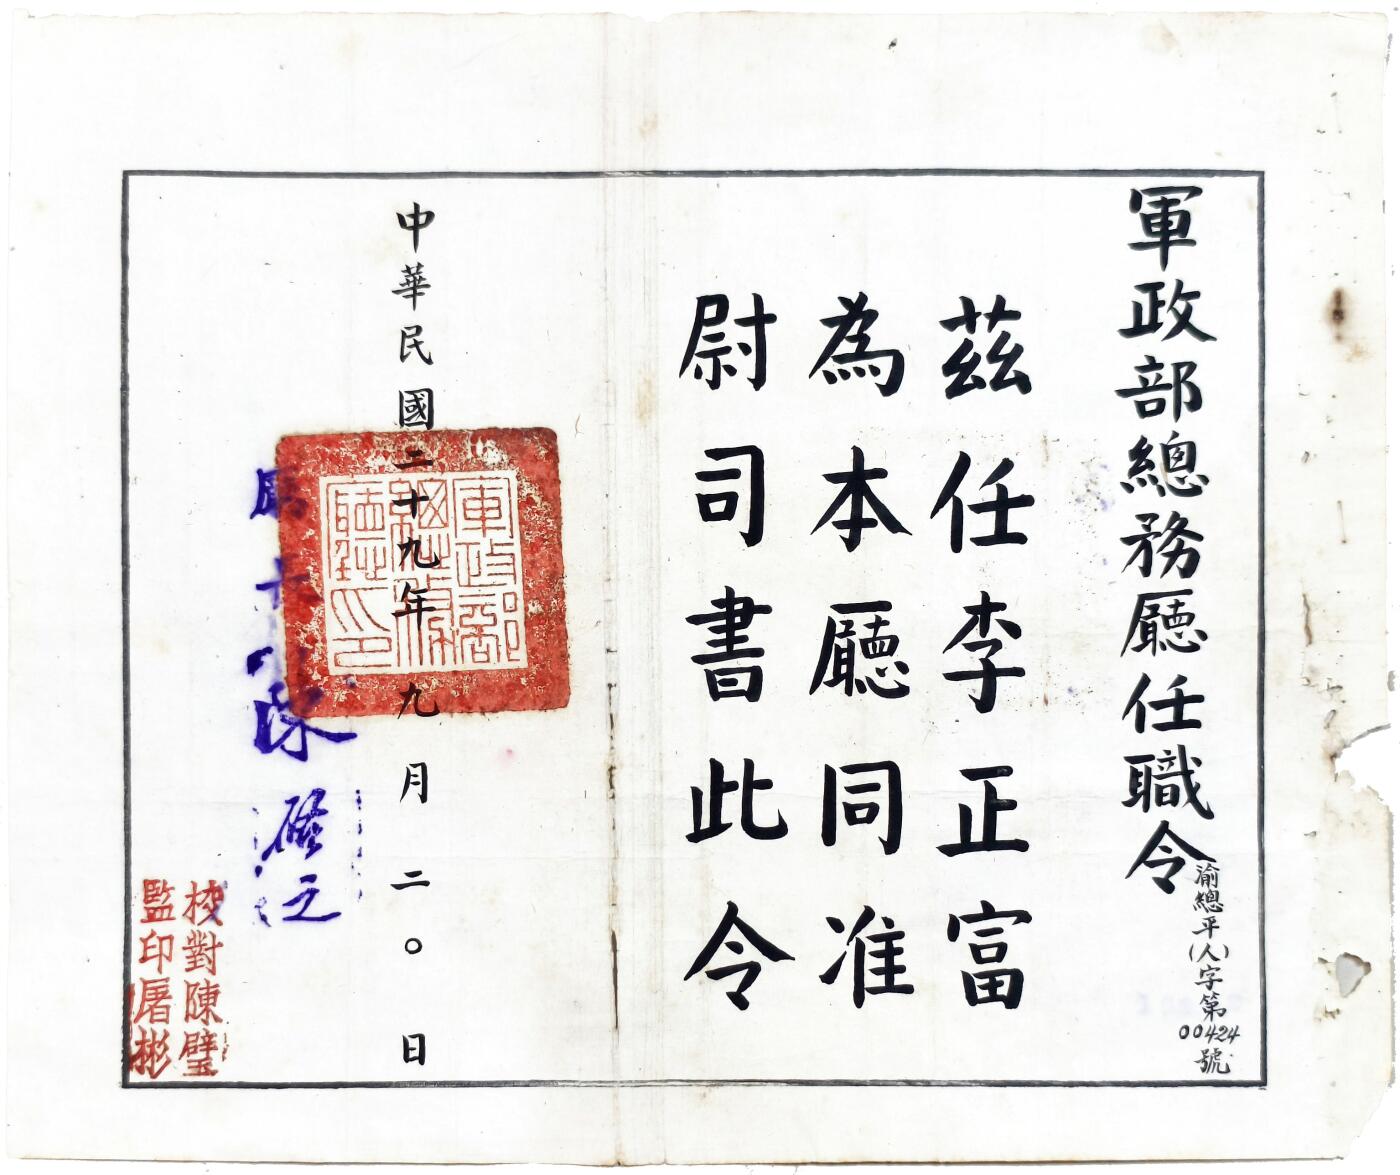 軍政部總務廳任職令
渝總平(人)字第00424號
茲任李正富
為本廳同准
尉司書此令
中華民國二十九年九月二〇日
軍政部
總務
廳印
陳
啓之
校對陳璧
監印屠彬